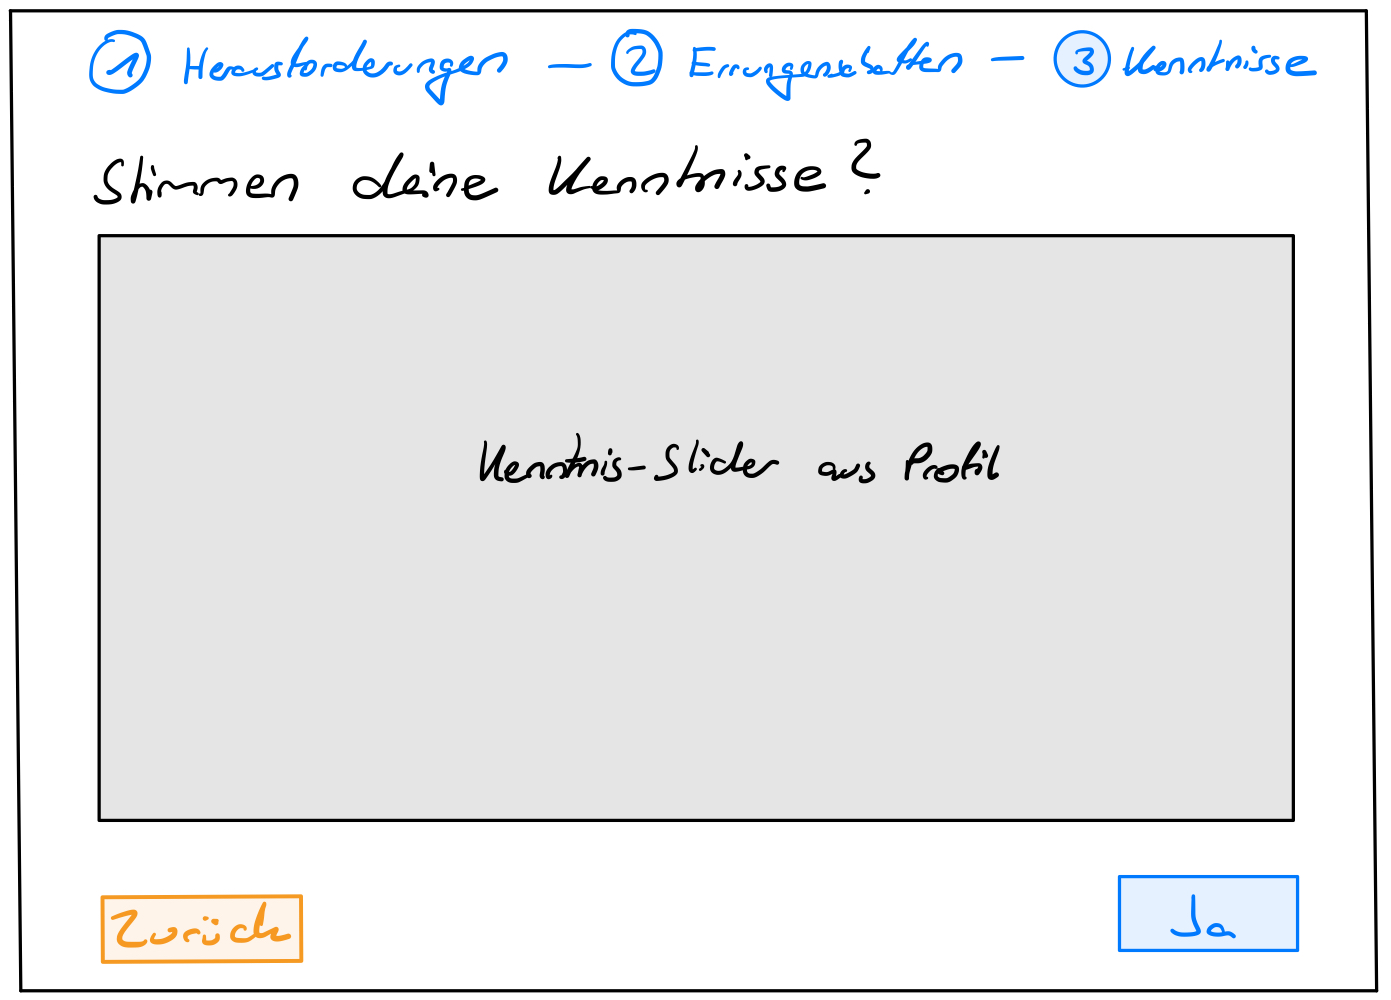 1 Herausforderungen — 2 Errungenschaften — 3 Kenntnisse
Stimmen deine Kenntnisse?
Kenntnis-Slider aus Profil
Zurück
Ja